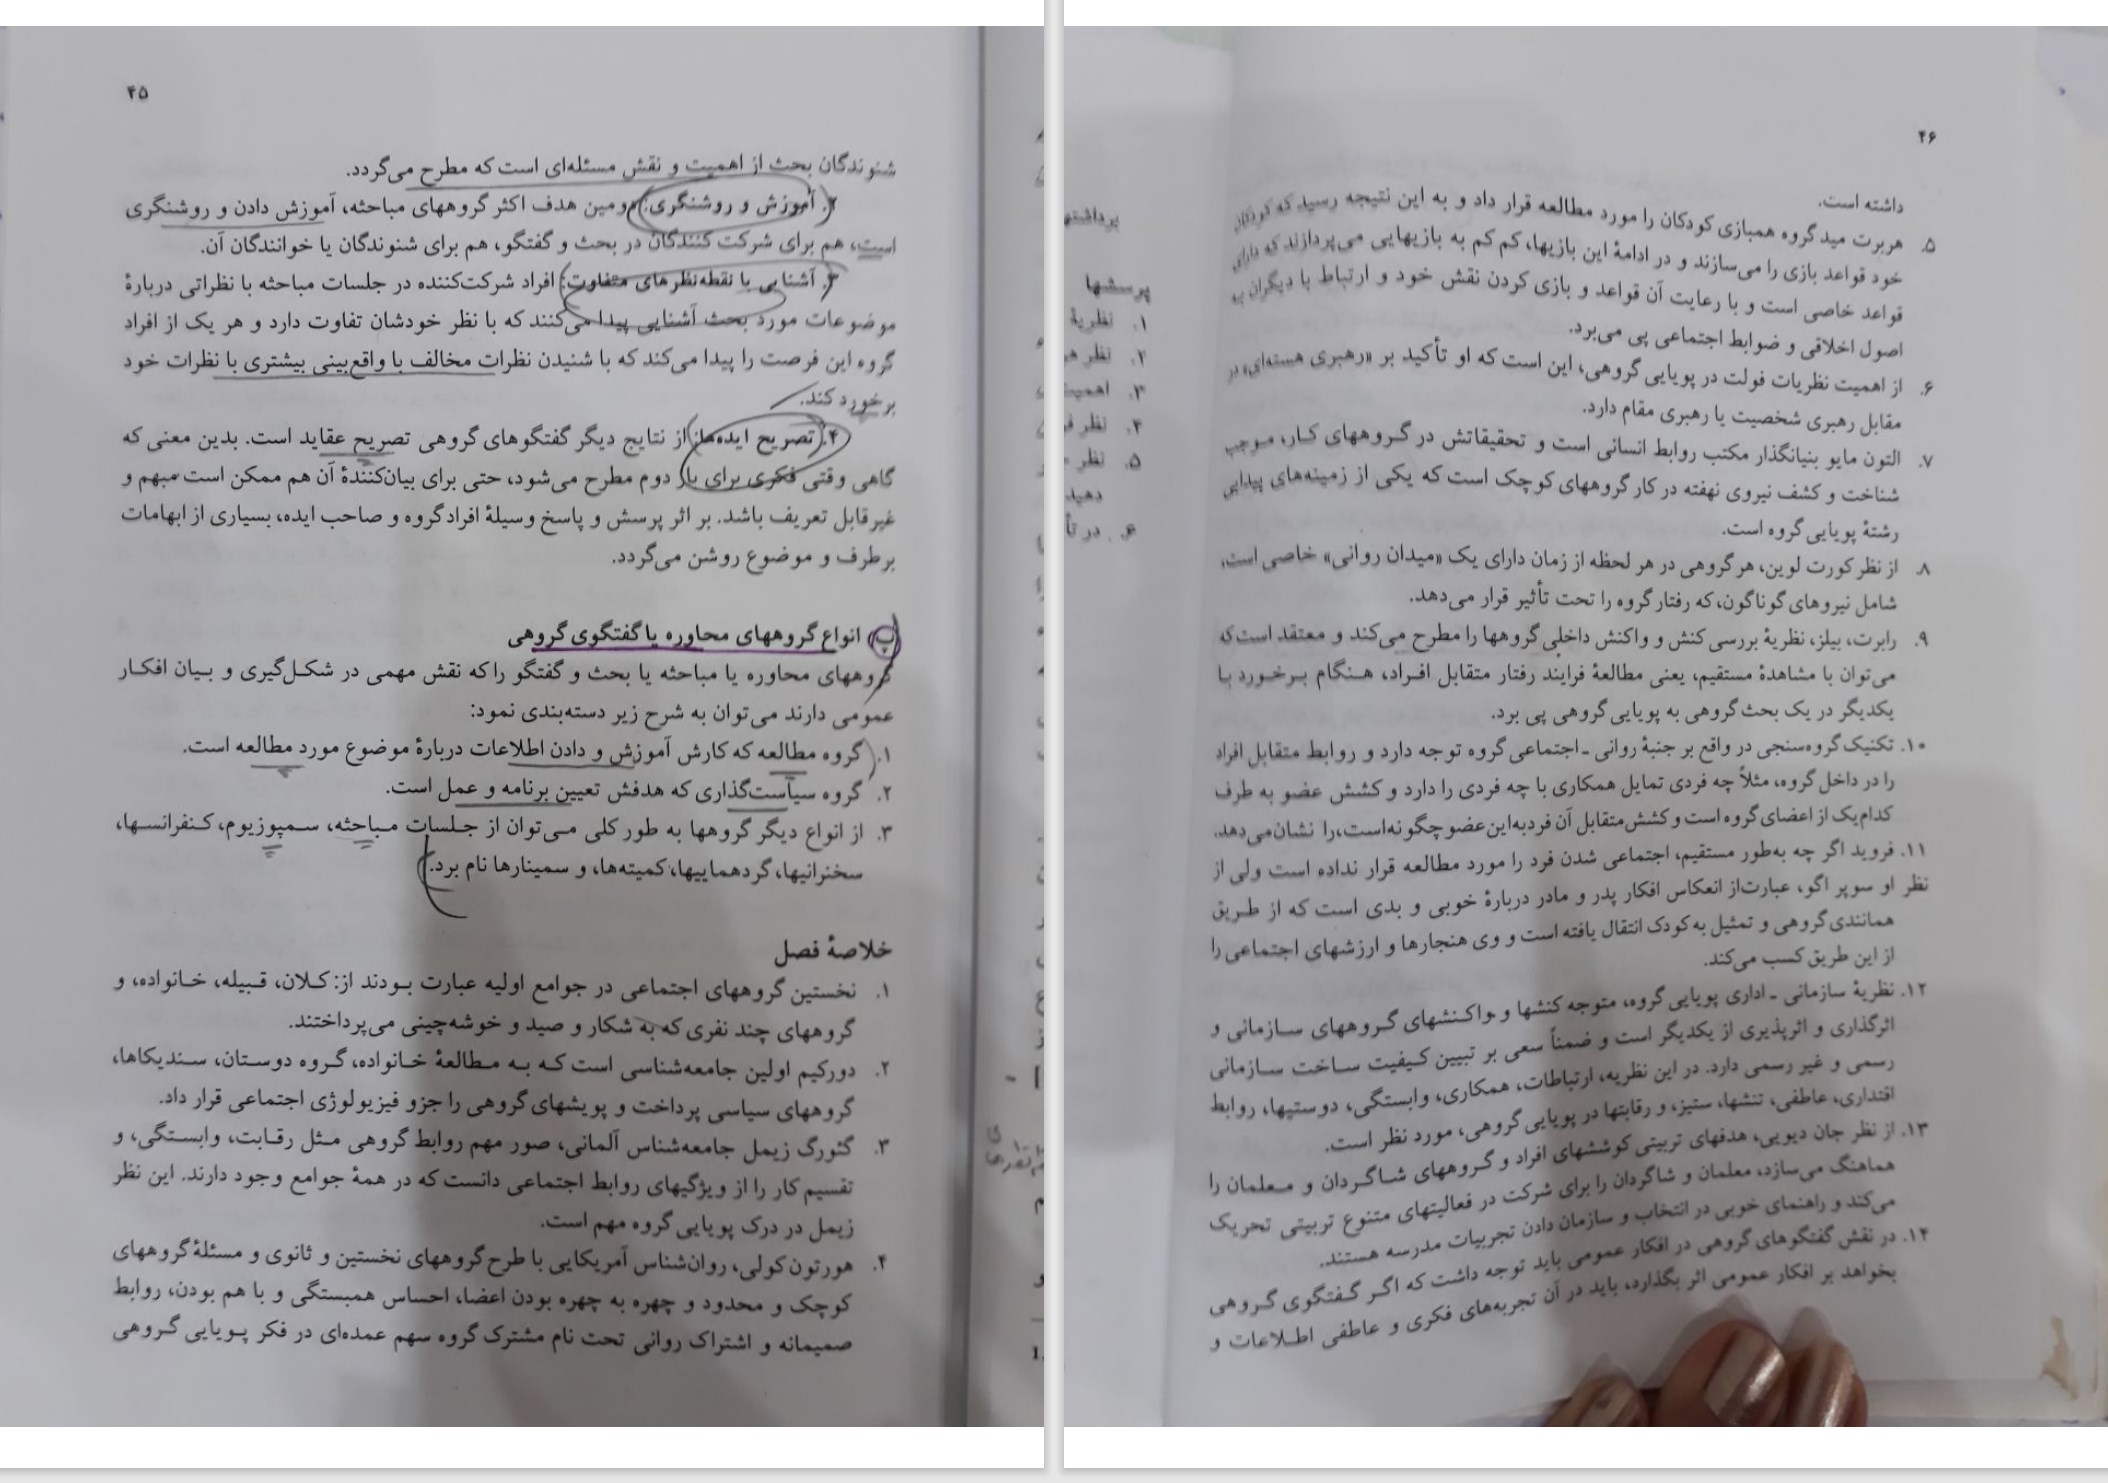 ۴۵
شنوندگان بحث از اهمیت و نقش مسئله‌ای است که مطرح می‌گردد.
۲. آموزش و روشنگری: دومین هدف اکثر گروههای مباحثه، آموزش دادن و روشنگری
است، هم برای شرکت کنندگان در بحث و گفتگو، هم برای شنوندگان یا خوانندگان آن.
۳. آشنایی با نقطه‌نظرهای متفاوت: افراد شرکت‌کننده در جلسات مباحثه با نظراتی دربارهٔ
موضوعات مورد بحث آشنایی پیدا می‌کنند که با نظر خودشان تفاوت دارد و هر یک از افراد
گروه این فرصت را پیدا می‌کند که با شنیدن نظرات مخالف با واقع‌بینی بیشتری با نظرات خود
برخورد کند.
۴. تصریح ایده‌ها: از نتایج دیگر گفتگوهای گروهی تصریح عقاید است. بدین معنی که
گاهی وقتی فکری برای بار دوم مطرح می‌شود، حتی برای بیان‌کنندهٔ آن هم ممکن است مبهم و
غیرقابل تعریف باشد. بر اثر پرسش و پاسخ وسیلهٔ افراد گروه و صاحب ایده، بسیاری از ابهامات
برطرف و موضوع روشن می‌گردد.
پ) انواع گروههای محاوره یا گفتگوی گروهی
گروههای محاوره یا مباحثه یا بحث و گفتگو را که نقش مهمی در شکل‌گیری و بیان افکار
عمومی دارند می‌توان به شرح زیر دسته‌بندی نمود:
۱. گروه مطالعه که کارش آموزش و دادن اطلاعات دربارهٔ موضوع مورد مطالعه است.
۲. گروه سیاست‌گذاری که هدفش تعیین برنامه و عمل است.
۳. از انواع دیگر گروهها به طور کلی می‌توان از جلسات مباحثه، سمپوزیوم، کنفرانسها،
سخنرانیها، گردهماییها، کمیته‌ها، و سمینارها نام برد.
خلاصهٔ فصل
۱. نخستین گروههای اجتماعی در جوامع اولیه عبارت بودند از: کلان، قبیله، خانواده، و
گروههای چند نفری که به شکار و صید و خوشه‌چینی می‌پرداختند.
۲. دورکیم اولین جامعه‌شناسی است که به مطالعهٔ خانواده، گروه دوستان، سندیکاها،
گروههای سیاسی پرداخت و پویشهای گروهی را جزو فیزیولوژی اجتماعی قرار داد.
۳. گئورگ زیمل جامعه‌شناس آلمانی، صور مهم روابط گروهی مثل رقابت، وابستگی، و
تقسیم کار را از ویژگیهای روابط اجتماعی دانست که در همهٔ جوامع وجود دارند. این نظر
زیمل در درک پویایی گروه مهم است.
۴. هورتون کولی، روان‌شناس آمریکایی با طرح گروههای نخستین و ثانوی و مسئلهٔ گروههای
کوچک و محدود و چهره به چهره بودن اعضا، احساس همبستگی و با هم بودن، روابط
صمیمانه و اشتراک روانی تحت نام مشترک گروه سهم عمده‌ای در فکر پویایی گروهی
۴۶
داشته است.
۵. هربرت مید گروه همبازی کودکان را مورد مطالعه قرار داد و به این نتیجه رسید که کودکان
خود قواعد بازی را می‌سازند و در ادامهٔ این بازیها، کم کم به بازیهایی می‌پردازند که دارای
قواعد خاصی است و با رعایت آن قواعد و بازی کردن نقش خود و ارتباط با دیگران به
اصول اخلاقی و ضوابط اجتماعی پی می‌برد.
۶. از اهمیت نظریات فولت در پویایی گروهی، این است که او تأکید بر «رهبری هسته‌ای» در
مقابل رهبری شخصیت یا رهبری مقام دارد.
۷. التون مایو بنیانگذار مکتب روابط انسانی است و تحقیقاتش در گروههای کار، موجب
شناخت و کشف نیروی نهفته در کار گروههای کوچک است که یکی از زمینه‌های پیدایی
رشتهٔ پویایی گروه است.
۸. از نظر کورت لوین، هر گروهی در هر لحظه از زمان دارای یک «میدان روانی» خاصی است،
شامل نیروهای گوناگون، که رفتار گروه را تحت تأثیر قرار می‌دهد.
۹. رابرت، بیلز، نظریهٔ بررسی کنش و واکنش داخلی گروهها را مطرح می‌کند و معتقد است که
می‌توان با مشاهدهٔ مستقیم، یعنی مطالعهٔ فرایند رفتار متقابل افراد، هنگام برخورد با
یکدیگر در یک بحث گروهی به پویایی گروهی پی برد.
۱۰. تکنیک گروه‌سنجی در واقع بر جنبهٔ روانی ـ اجتماعی گروه توجه دارد و روابط متقابل افراد
را در داخل گروه، مثلاً چه فردی تمایل همکاری با چه فردی را دارد و کشش عضو به طرف
کدام یک از اعضای گروه است و کشش متقابل آن فرد به این عضو چگونه است، را نشان می‌دهد.
۱۱. فروید اگر چه به‌طور مستقیم، اجتماعی شدن فرد را مورد مطالعه قرار نداده است ولی از
نظر او سوپر اگو، عبارت از انعکاس افکار پدر و مادر دربارهٔ خوبی و بدی است که از طریق
همانندی گروهی و تمثیل به کودک انتقال یافته است و وی هنجارها و ارزشهای اجتماعی را
از این طریق کسب می‌کند.
۱۲. نظریهٔ سازمانی ـ اداری پویایی گروه، متوجه کنشها و واکنشهای گروههای سازمانی و
اثرگذاری و اثرپذیری از یکدیگر است و ضمناً سعی بر تبیین کیفیت ساخت سازمانی
رسمی و غیر رسمی دارد. در این نظریه، ارتباطات، همکاری، وابستگی، دوستیها، روابط
اقتداری، عاطفی، تنشها، ستیز، و رقابتها در پویایی گروهی، مورد نظر است.
۱۳. از نظر جان دیویی، هدفهای تربیتی کوششهای افراد و گروههای شاگردان و معلمان را
هماهنگ می‌سازد، معلمان و شاگردان را برای شرکت در فعالیتهای متنوع تربیتی تحریک
می‌کند و راهنمای خوبی در انتخاب و سازمان دادن تجربیات مدرسه هستند.
۱۴. در نقش گفتگوهای گروهی در افکار عمومی باید توجه داشت که اگر گفتگوی گروهی
بخواهد بر افکار عمومی اثر بگذارد، باید در آن تجربه‌های فکری و عاطفی اطلاعات و
پرسشها
۱. نظریهٔ
۲. نظر
۳.
۴. نظر
۵. نظر
دهید
۶. در